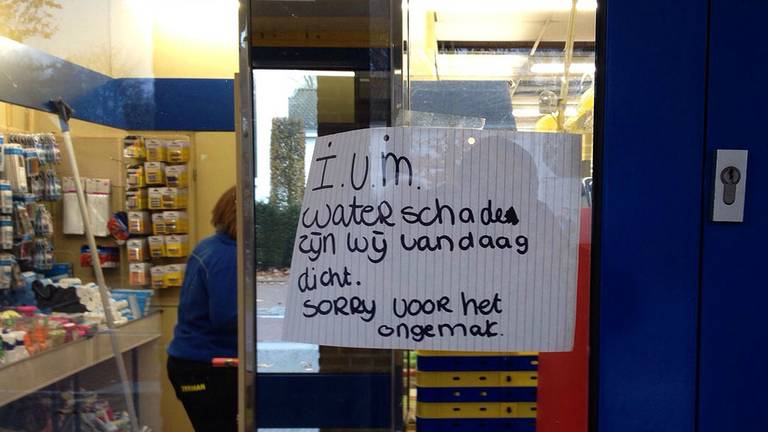 I.U.M.
WATER schade
zijn wij vandaag
dicht.
SORRY VOOR het
ongemak.